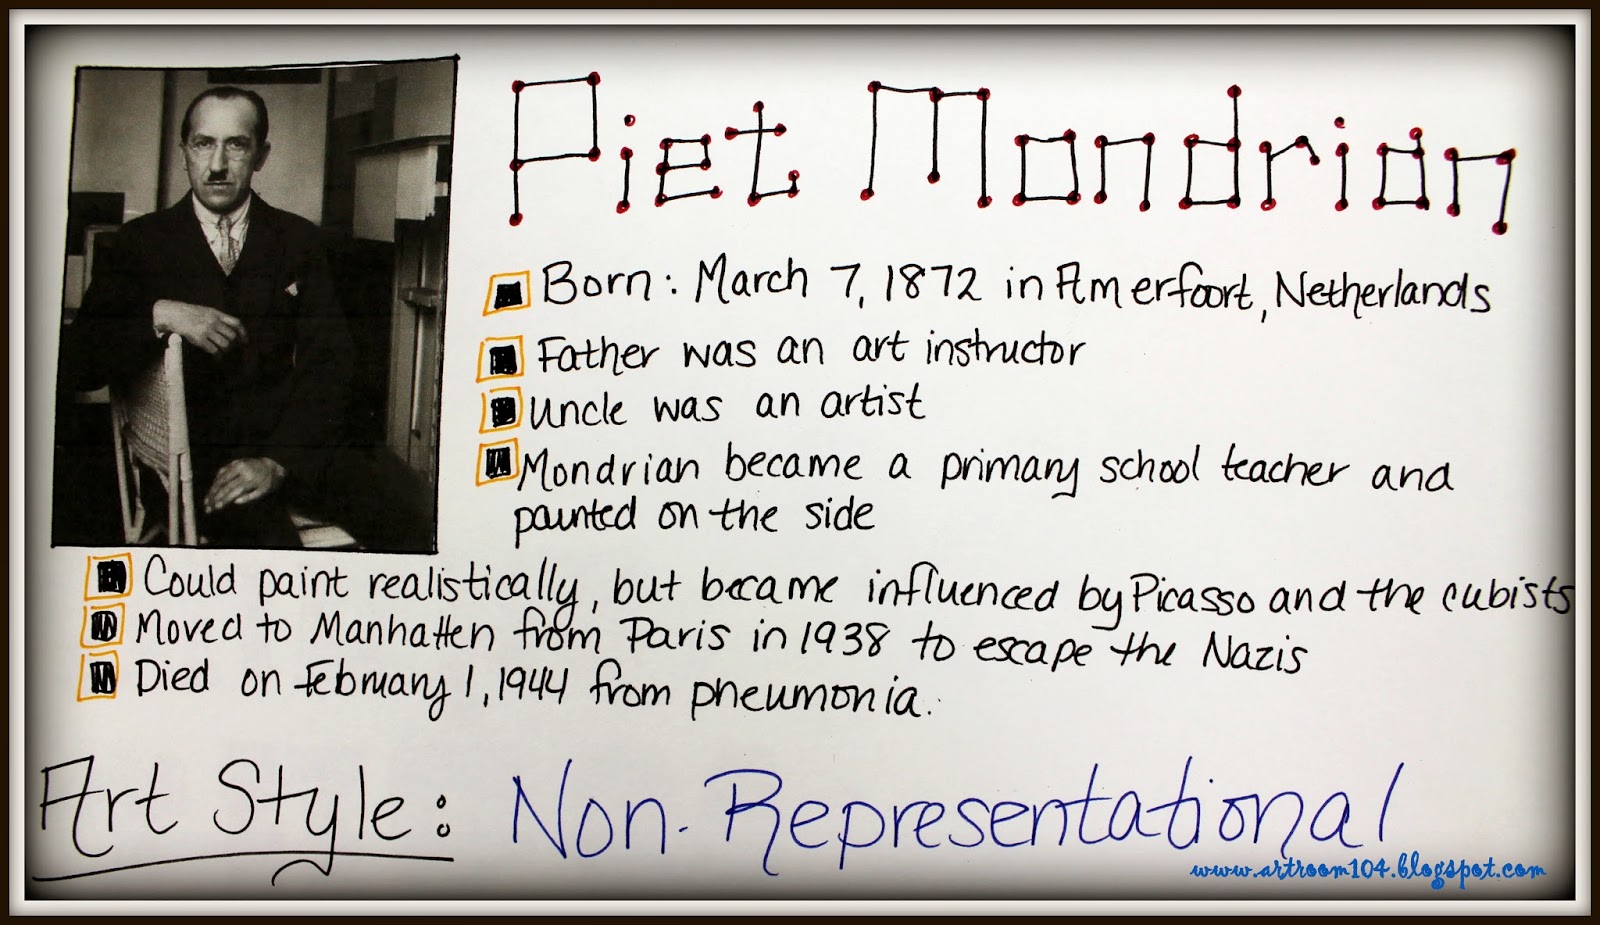 Piet Mondrian
Born: March 7, 1872 in Amerfoort, Netherlands
Father was an art instructor
Uncle was an artist
Mondrian became a primary school teacher and
painted on the side
Could paint realistically, but became influenced by Picasso and the cubists
Moved to Manhatten from Paris in 1938 to escape the Nazis
Died on February 1, 1944 from pneumonia.
Art Style: Non-Representational
www.artroom104.blogspot.com